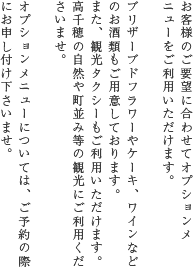 お客様のご要望に合わせてオプションメ
ニューをご利用いただけます。
ブリザーブドフラワーやケーキ、ワインなど
のお酒類もご用意しております。
また、観光タクシーもご利用いただけます。
高千穂の自然や町並み等の観光にご利用くだ
さいませ。
オプションメニューについては、ご予約の際
にお申し付け下さいませ。